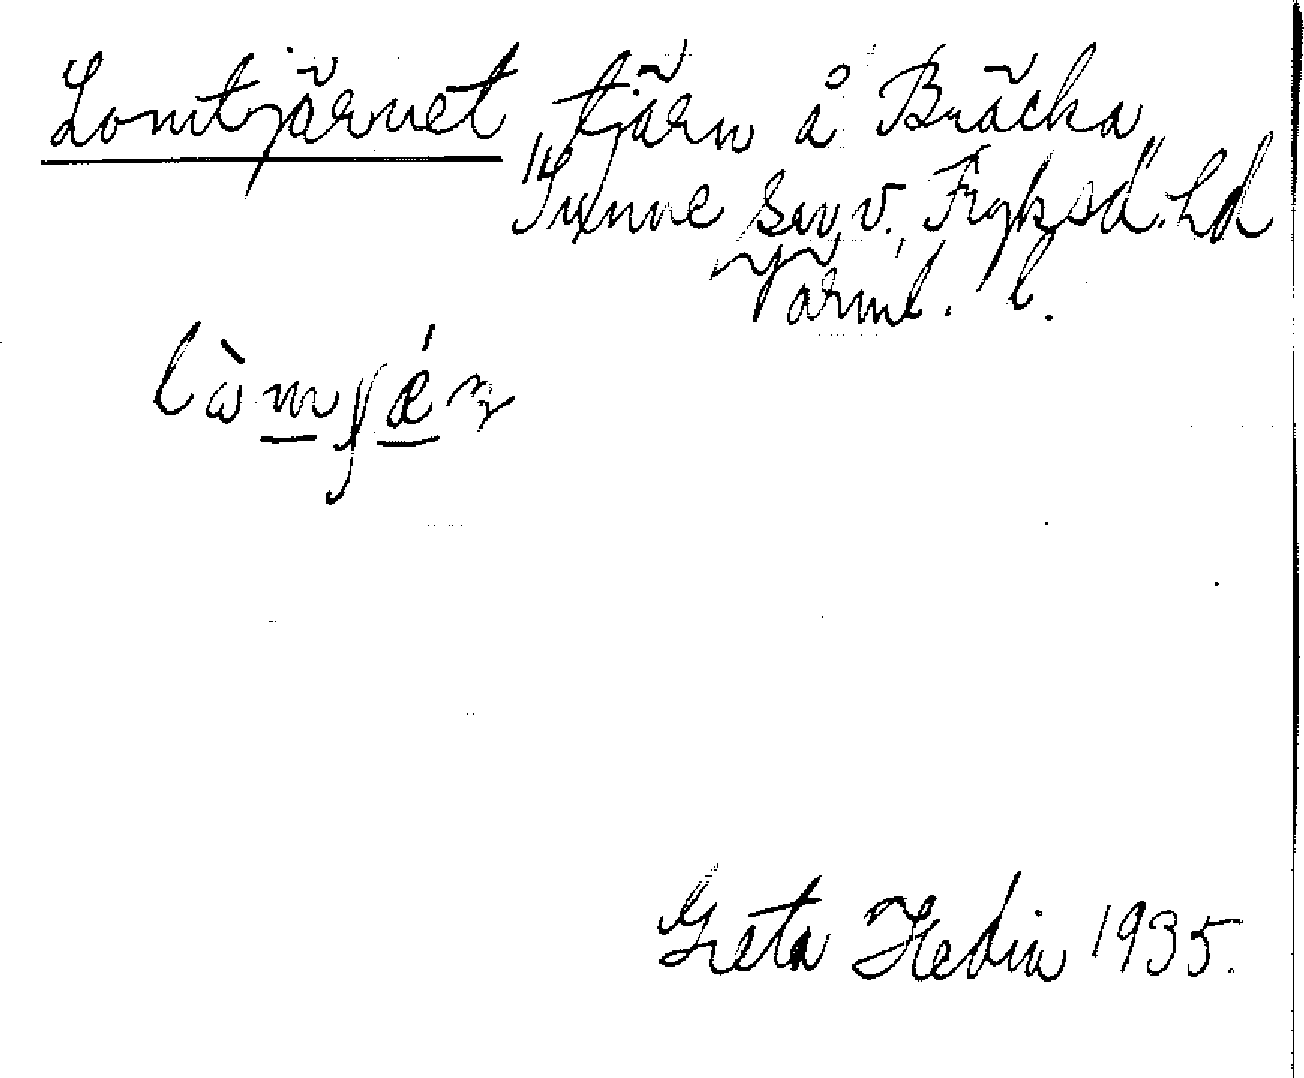 Lomtjärnet, tjärn å Bräcka,
Sunne sn, v. Fryksd. hd
Värml. l.
Greta Hedin 1935.